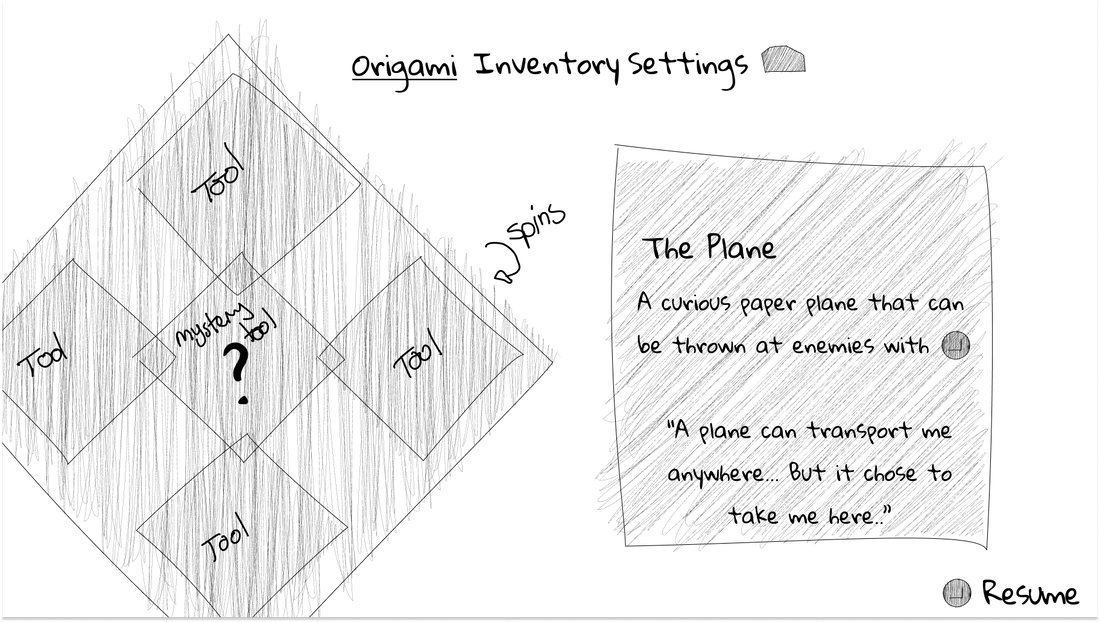 Origami Inventory Settings
Tool
spins
mystery
tool
?
Tool
Tool
Tool
The Plane
A curious paper plane that can
be thrown at enemies with
"A plane can transport me
anywhere... But it chose to
take me here.."
Resume